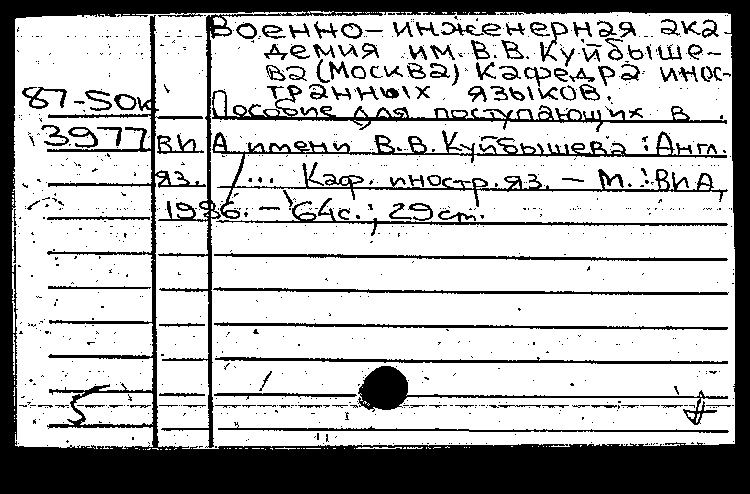 Военно-инженерная ака-
демия им. В.В. Куйбыше-
ва (Москва) Кафедра инос-
транных языков.
87-50к Пособие для поступающих в
3977 ВИА имени В.В. Куйбышева : Англ.
яз. / ... Каф. иностр. яз. – М. : ВИА,
1986. – 64с. ; 29 cm.
5